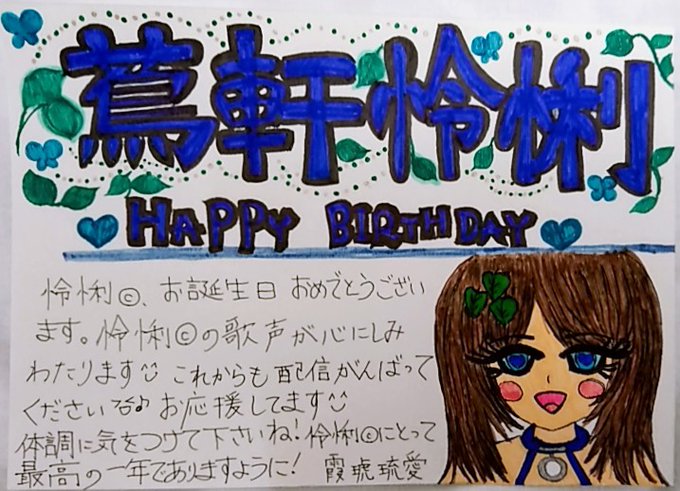 蔦軒怜悧
HAPPY BIRTHDAY
怜悧©、お誕生日おめでとうござい
ます。怜悧©の歌声が心にしみ
わたります これからも配信がんばって
ください お応援してます
体調に気をつけて下さいね!怜悧©にとって
最高の一年でありますように! 霞琥琉愛